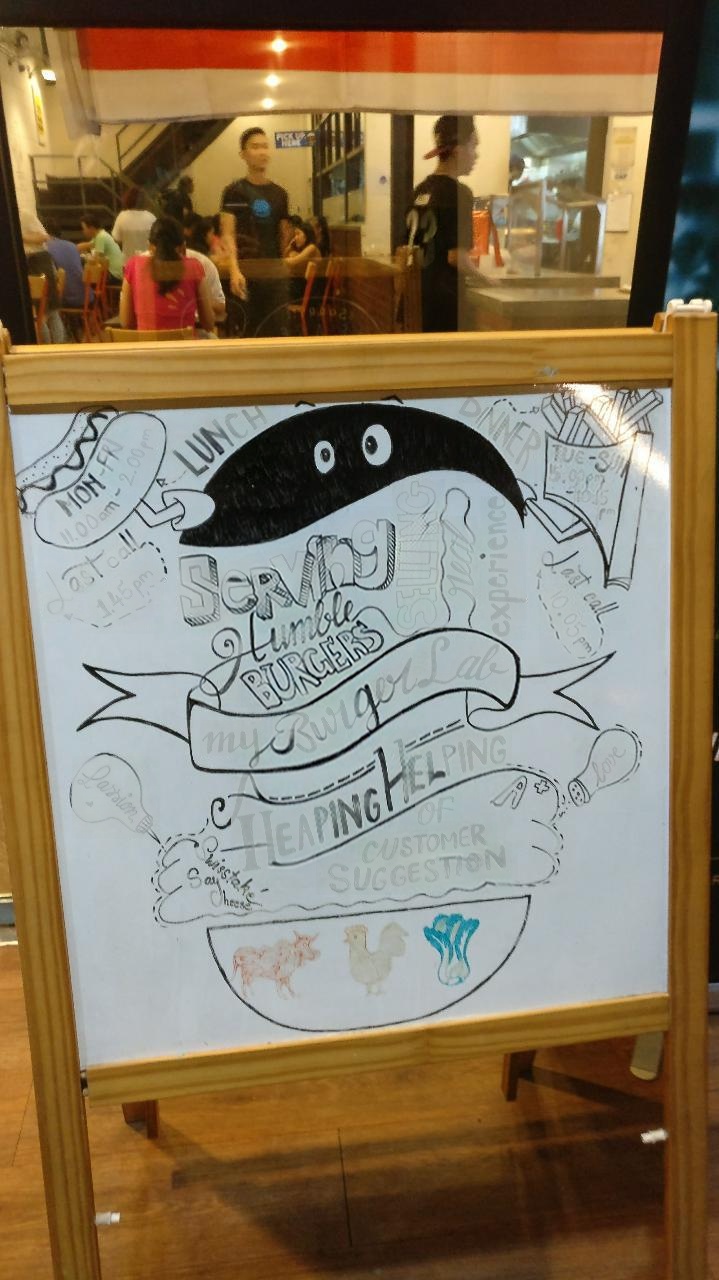 PICK UP
HERE
LUNCH
MON-FRI
11.00am - 2.00pm
Last call
1.45pm
DINNER
TUE-SUN
Last call
10.05pm
Serving
Humble
BURGERS
SELLING
real
experience
my BurgerLab
A
HEAPING HELPING
OF
CUSTOMER
SUGGESTION
A+
Passion
love
Swisstake!
Say
Cheese